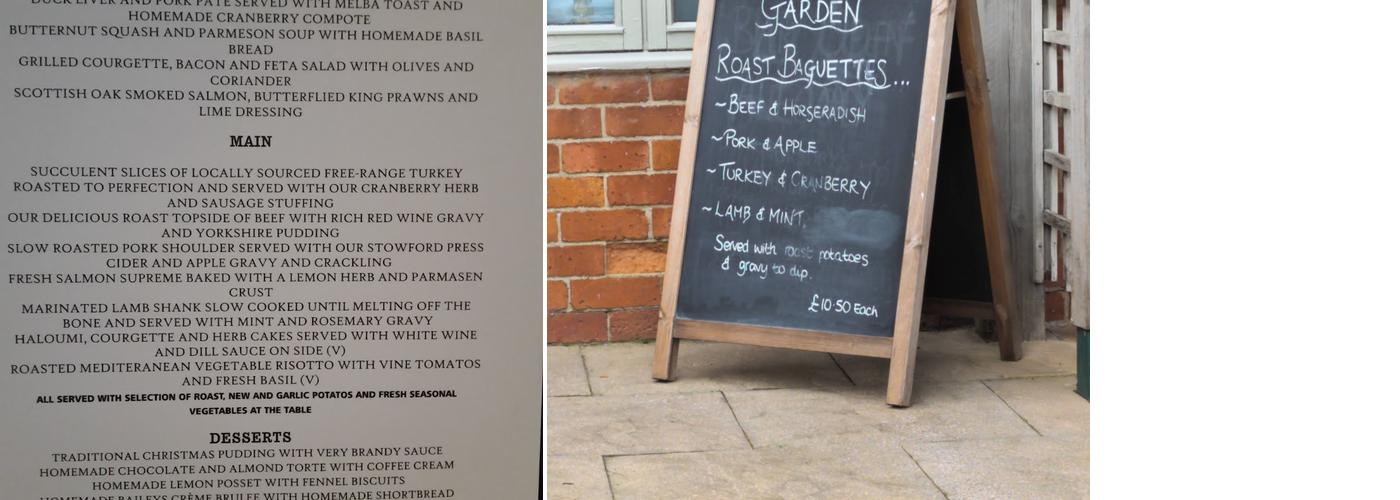 DUCK LIVER AND PORK PATE SERVED WITH MELBA TOAST AND
HOMEMADE CRANBERRY COMPOTE
BUTTERNUT SQUASH AND PARMESON SOUP WITH HOMEMADE BASIL
BREAD
GRILLED COURGETTE, BACON AND FETA SALAD WITH OLIVES AND
CORIANDER
SCOTTISH OAK SMOKED SALMON, BUTTERFLIED KING PRAWNS AND
LIME DRESSING
MAIN
SUCCULENT SLICES OF LOCALLY SOURCED FREE-RANGE TURKEY
ROASTED TO PERFECTION AND SERVED WITH OUR CRANBERRY HERB
AND SAUSAGE STUFFING
OUR DELICIOUS ROAST TOPSIDE OF BEEF WITH RICH RED WINE GRAVY
AND YORKSHIRE PUDDING
SLOW ROASTED PORK SHOULDER SERVED WITH OUR STOWFORD PRESS
CIDER AND APPLE GRAVY AND CRACKLING
FRESH SALMON SUPREME BAKED WITH A LEMON HERB AND PARMASEN
CRUST
MARINATED LAMB SHANK SLOW COOKED UNTIL MELTING OFF THE
BONE AND SERVED WITH MINT AND ROSEMARY GRAVY
HALOUMI, COURGETTE AND HERB CAKES SERVED WITH WHITE WINE
AND DILL SAUCE ON SIDE (V)
ROASTED MEDITERANEAN VEGETABLE RISOTTO WITH VINE TOMATOS
AND FRESH BASIL (V)
ALL SERVED WITH SELECTION OF ROAST, NEW AND GARLIC POTATOS AND FRESH SEASONAL
VEGETABLES AT THE TABLE
DESSERTS
TRADITIONAL CHRISTMAS PUDDING WITH VERY BRANDY SAUCE
HOMEMADE CHOCOLATE AND ALMOND TORTE WITH COFFEE CREAM
HOMEMADE LEMON POSSET WITH FENNEL BISCUITS
HOMEMADE BAILEYS CRÈME BRULEE WITH HOMEMADE SHORTBREAD
GARDEN
ROAST BAGUETTES...
~BEEF & HORSERADISH
~PORK & APPLE
~TURKEY & CRANBERRY
~LAMB & MINT.
Served with roast potatoes
& gravy to dip.
£10.50 Each